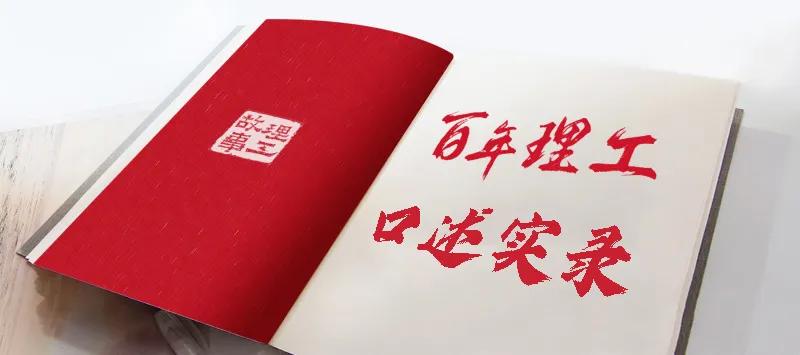 理工
故事
百年理工
口述实录